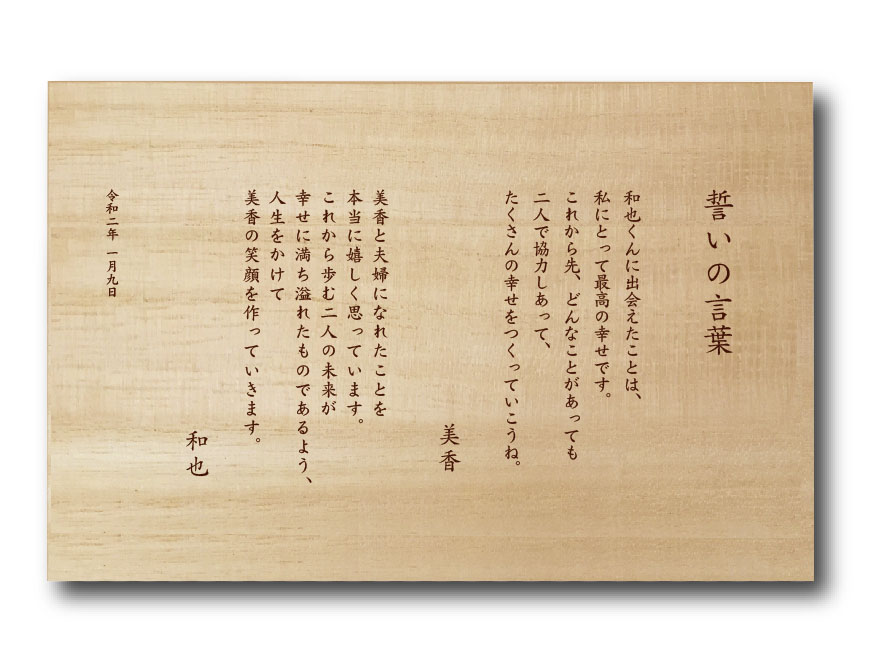 誓いの言葉
和也くんに出会えたことは、
私にとって最高の幸せです。
これから先、どんなことがあっても
二人で協力しあって、
たくさんの幸せをつくっていこうね。
美香
美香と夫婦になれたことを
本当に嬉しく思っています。
これから歩む二人の未来が
幸せに満ち溢れたものであるよう、
人生をかけて
美香の笑顔を作っていきます。
和也
令和二年 一月九日